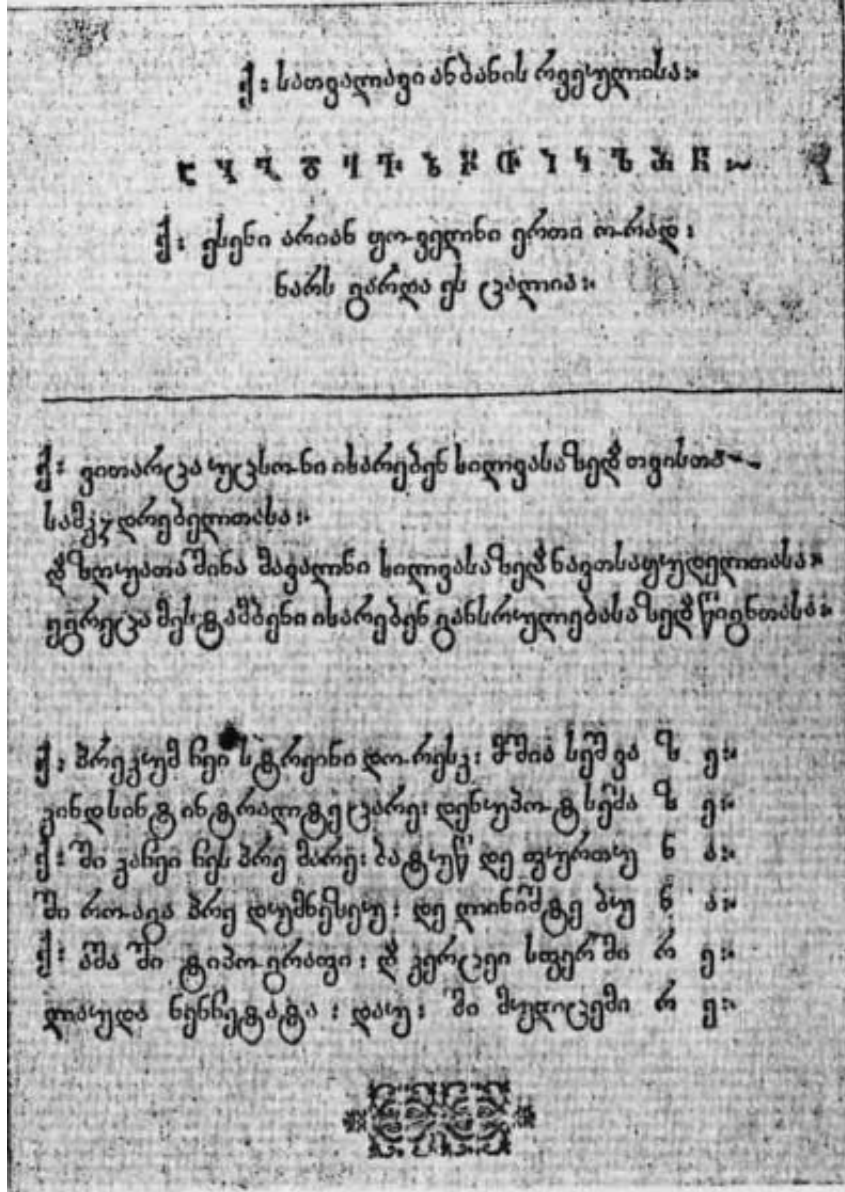 ქ: სათვალავი ანბანის რვეულისა:~
Ⴀ Ⴁ Ⴂ Ⴃ Ⴄ Ⴅ Ⴆ Ⴡ Ⴇ Ⴈ Ⴉ Ⴊ Ⴋ Ⴌ:~
ქ: ესენი არიან ყოველნი ერთი ორად:
ნარს გარდა ეს ცალია:~
ქ: ვითარცა უცხონი იხარებენ ხილვასა ზედა თვისთა
სამკჳდრებელთასა:~
და ზღუათა შინა მავალნი ხილვასა ზედა ნავთსაყუდელთასა:~
ეგრეცა მესტამბენი იხარებენ განსრულებასა ზედა წიგნთასა:~
ქ: პრეკუმ ჩეი სტრეინი დორესკ: მოშია სეშ ვა ზ ე:~
კინდ სინტ ინტრალტე ცარე: დენუპოტ სეშა ზ ე:~
ქ: ში კაჩეი ჩეს პრე მარე: ბატუწ დე ფურთუ ნ ა:~
ში როაგა პრე დუმნეზეუ: დე ლინიშტე ბუ ნ ა:~
ქ: აშა ში ტიპოგრაფი: დ კერცეი სფერში რ ე:~
ლაუდა ნენჩეტატა: დაუ: ში მულცემი რ ე:~